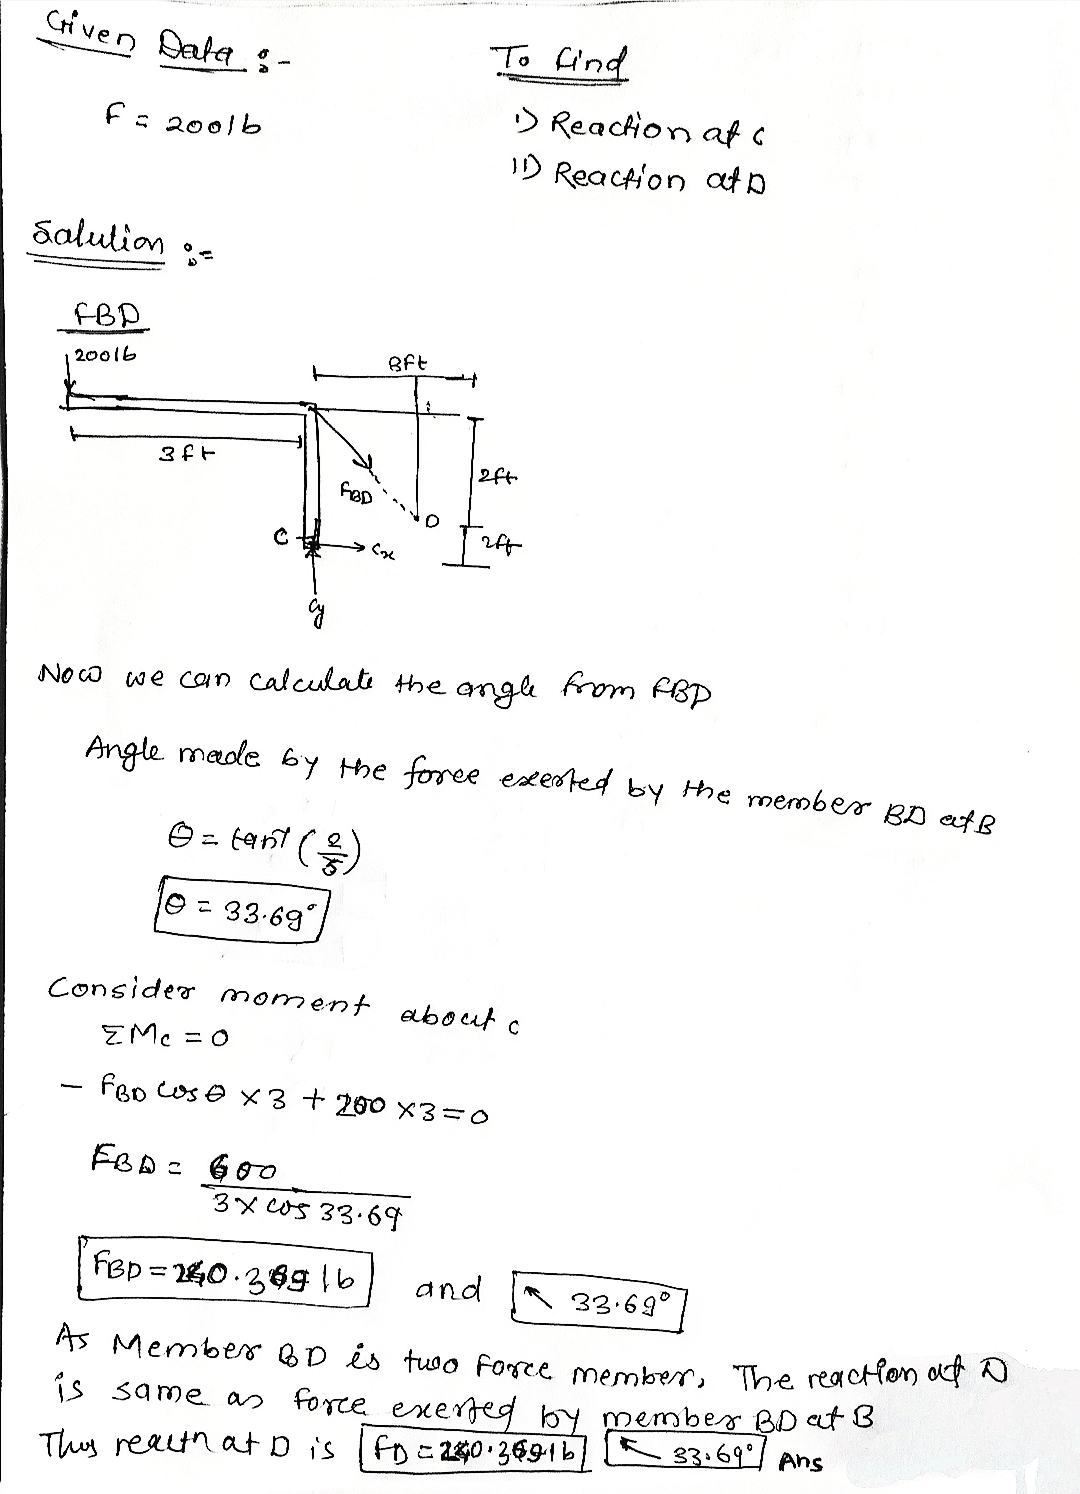 Given Data :-
To find
F = 200lb
I) Reaction at C
II) Reaction at D
Salution :=
FBD
200lb
8ft
3ft
2ft
FBD
D
2ft
C
Cx
Cy
Now we can calculate the angle from FBD
Angle made by the force exerted by the member BD at B
θ = tan⁻¹ (2/3)
θ = 33.69°
Consider moment about c
ΣMc = 0
- FBD cosθ × 3 + 200 × 3 = 0
FBD = 600
3 × cos 33.69
FBD = 240.369 lb and ↖ 33.69°
As Member BD is two force member, The reaction at D
is same as force exerted by member BD at B
Thus reactn at D is FD = 240.369 lb ↖ 33.69° Ans